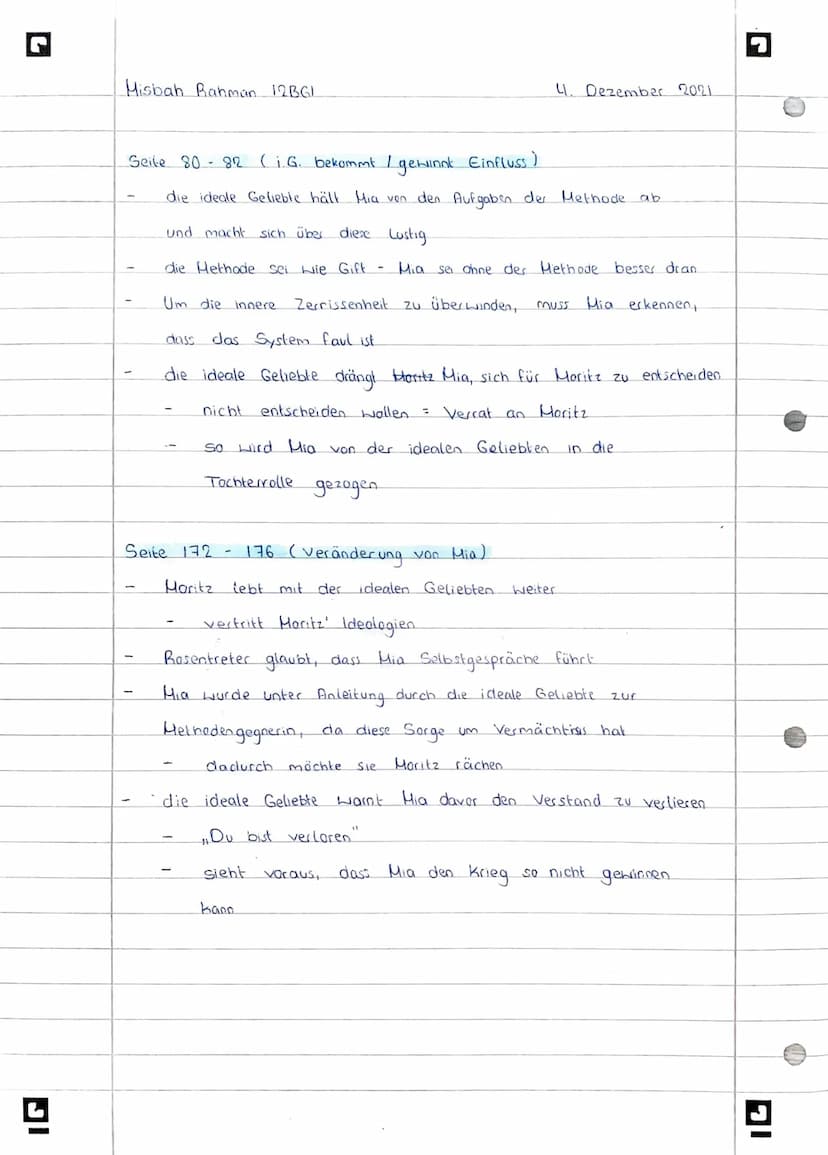 Misbah Rahman 12BG1 4. Dezember 2021
Seite 80 - 82 (i.G. bekommt / gewinnt Einfluss)
- die ideale Geliebte hält Mia von den Aufgaben der Methode ab
und macht sich über diese lustig
- die Methode sei wie Gift - Mia sei ohne der Methode besser dran
- Um die innere Zerrissenheit zu überwinden, muss Mia erkennen,
dass das System faul ist
- die ideale Geliebte drängt Moritz Mia, sich für Moritz zu entscheiden
- nicht entscheiden wollen = Verrat an Moritz
- so wird Mia von der idealen Geliebten in die
Tochterrolle gezogen
Seite 172 - 176 (Veränderung von Mia)
- Moritz lebt mit der idealen Geliebten weiter
- vertritt Moritz' Ideologien
- Rosentreter glaubt, dass Mia Selbstgespräche führt
- Mia wurde unter Anleitung durch die ideale Geliebte zur
Methodengegnerin, da diese Sorge um Vermächtiss hat
- dadurch möchte sie Moritz rächen
- die ideale Geliebte warnt Mia davor den Verstand zu verlieren
- „Du bist verloren"
- sieht voraus, dass Mia den Krieg so nicht gewinnen
kann